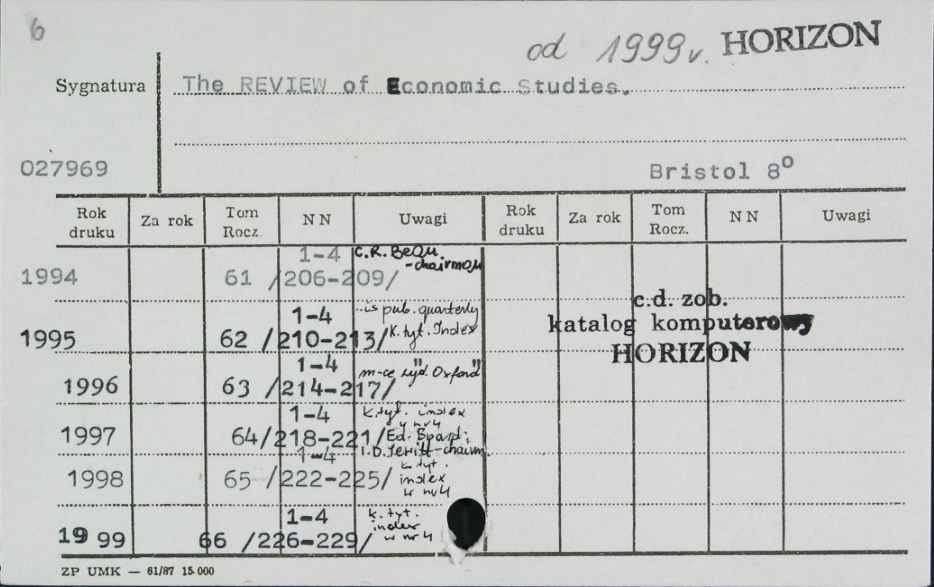 6
od 1999r. HORIZON
Sygnatura The REVIEW of Economic Studies.
027969 Bristol 8⁰
Rok druku Za rok Tom Rocz. NN Uwagi Rok druku Za rok Tom Rocz. NN Uwagi
1-4 C.R. Bean
-chairman
1994 61 /206-209/
1-4 is pub. quarterly
1995 62 /210-213/ k.tyt. Index
1-4 m-ce wyd "Oxford"
1996 63 /214-217/
1-4 k.tyt. index
w nr 4
1997 64/218-221/ Ed. Board:
1-4 -chairm.
k. tyt.
1998 65 /222-225/ index
w nr 4
1-4 k. tyt.
index
1999 66 /226-229/ w nr 4
c.d. zob.
katalog komputerowy
HORIZON
ZP UMK — 61/87 15.000